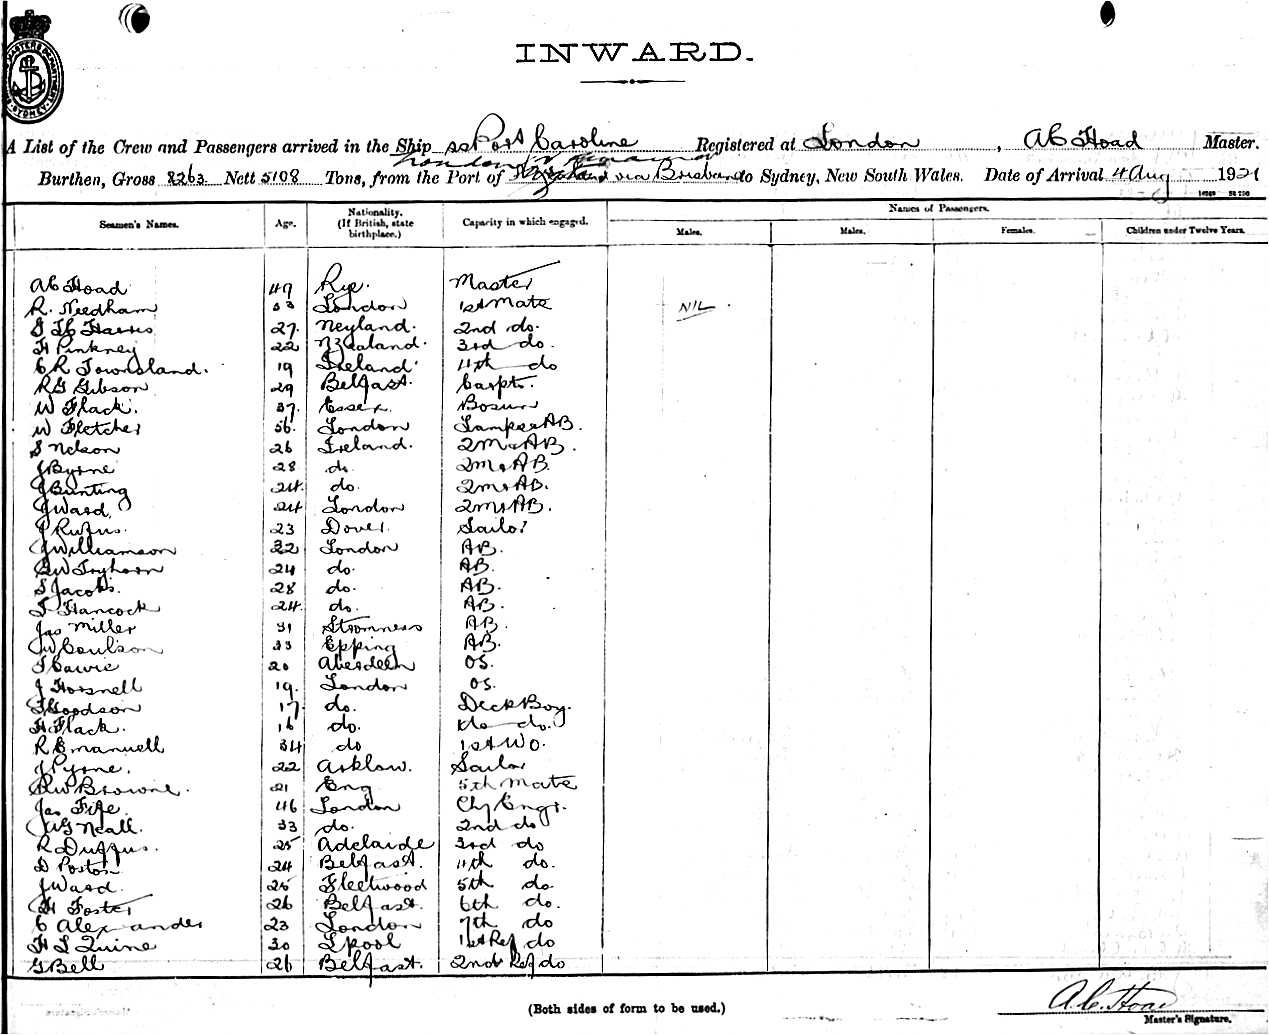 INWARD.
A List of the Crew and Passengers arrived in the Ship ss Port Caroline Registered at London, A C Hoad Master.
London
Burthen, Gross 8263 Nett 5108 Tons, from the Port of via Brisbane to Sydney, New South Wales. Date of Arrival 4 Aug 1921
Seamen's Names. Age. Nationality. (If British, state birthplace.) Capacity in which engaged. Names of Passengers.
Males. Males. Females. Children under Twelve Years.
A C Hoad 49 Rye. Master
R. Needham 53 London 1st Mate NIL.
Harris 27. Neyland. 2nd do.
H Pinkney 22 N Zealand. 3rd do.
C R Townsland. 19 Ireland. 4th do
R G Gibson 29 Belfast. Carptr.
W Flack. 37. Essex. Bosun
W Fletcher 56. London Lamps AB.
S Nelson 26 Ireland. 2Ms AB.
J Byrne 28 do. 2Ms AB.
J Bunting 24. do. 2ms AB.
J Ward. 24 London 2ms AB.
J Rufus. 23 Dover. Sailor
J Williamson 22 London AB.
24 do. AB.
S Jacobs. 28 do. AB.
S Hancock 24. do. AB.
Jas Miller 31 Stromness AB.
W Coulson 33 Epping AB.
20 Aberdeen OS.
J Horsnell 19. London OS.
Goodson 17. do. Deck Boy.
H Flack. 16 do. do do.
R Emanuell 34 do 1st WO.
J Pyrne. 22 Arklow. Sailor
R W Browne. 21 Eng 5th Mate
Jas Fife. 46 London Chf Engr.
W G Neall. 33 do. 2nd do
R Duffus. 25 Adelaide 3rd do
D Poston 24 Belfast. 4th do.
J Ward. 25 Fleetwood 5th do.
H Foster 26 Belfast. 6th do.
C Alexander 23 London 7th do
H L Quine 30 Lpool 1st Ref do
G Bell 26 Belfast. 2nd Ref do
(Both sides of form to be used.)
A. C. Hoad
Master's Signature.